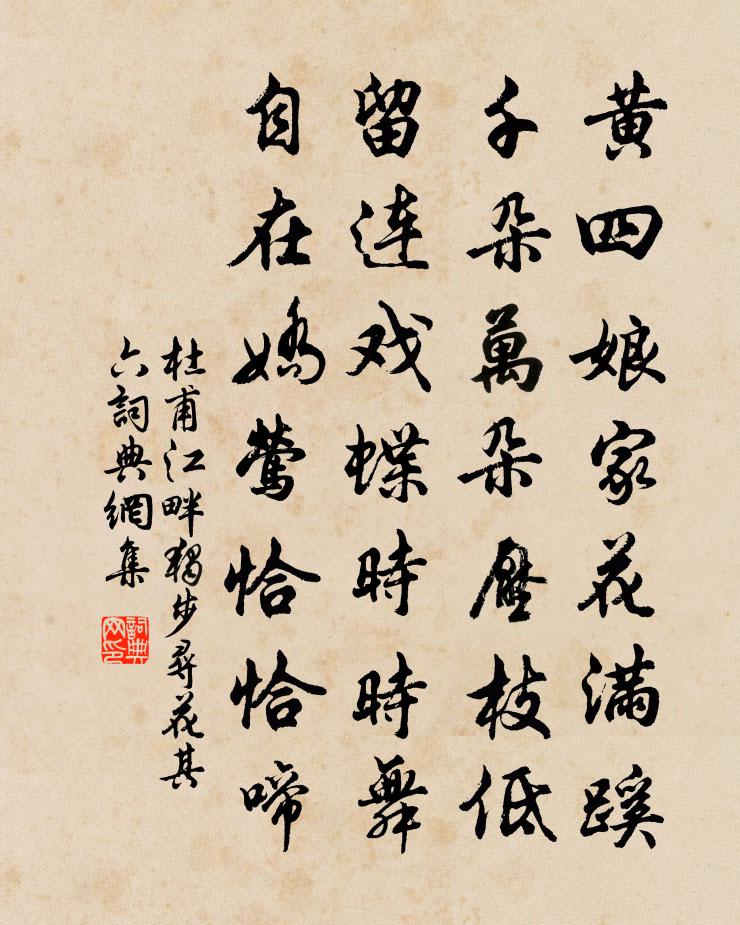 黃四娘家花滿蹊
千朶萬朶壓枝低
留連戏蝶時時舞
自在嬌鶯恰恰啼
杜甫江畔獨步尋花其
六詞典網集
詞典
网印